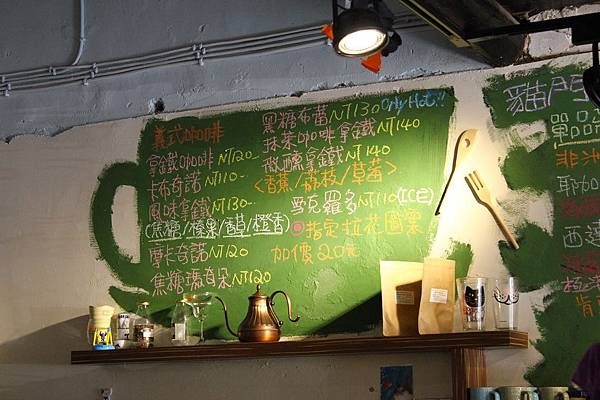 義式咖啡
拿鐵咖啡NT120
卡布奇諾NT110
風味拿鐵NT130
(焦糖/榛果/香草/橙香)
摩卡奇諾NT120
焦糖瑪奇朵NT120
黑糖布蕾NT130 Only Hot!!
抹茶咖啡拿鐵NT140
微醺拿鐵NT140
<香蕉/荔枝/草莓>
雪克羅多NT110(ICE)
指定拉花圖案
加價20元
貓門
單品
非洲
耶加
西達